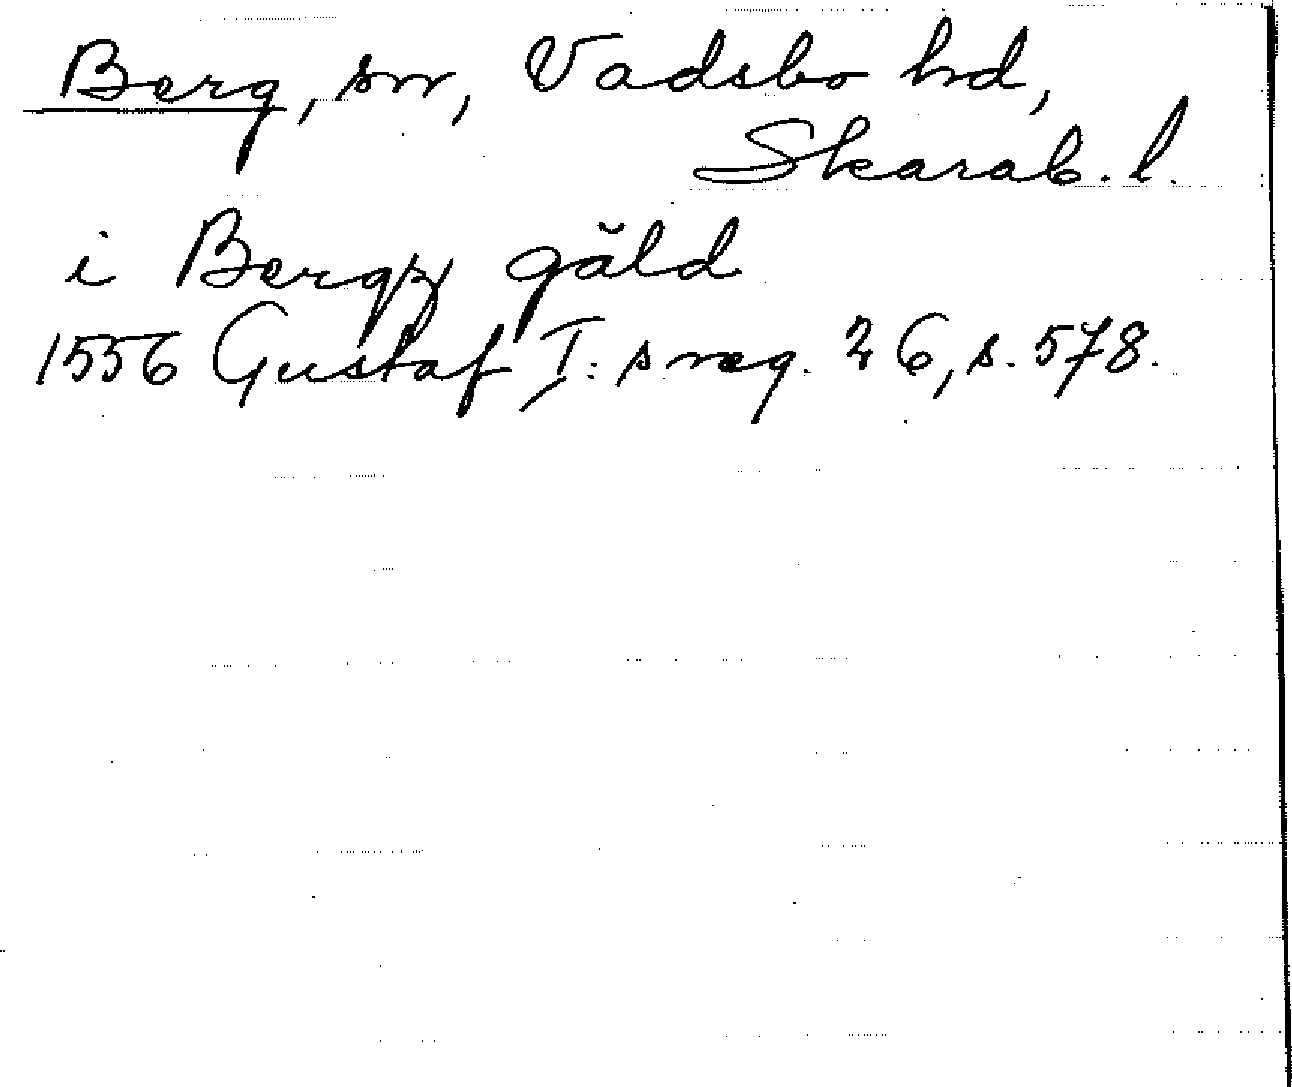 Berg, sn, Vadsbo hd,
Skarab. l.
i Bergz gäld
1556 Gustaf I:s reg. 26, s. 578.